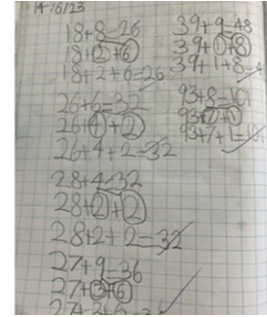 14/6/23
18+8=26
18+2+6
18+2+6=26
26+6=32
26+4+2
26+4+2=32
28+4=32
28+2+2
28+2+2=32
27+9=36
27+3+6
39+9=48
39+1+8
39+1+8=4
93+8=101
93+7+1
93+7+1=101